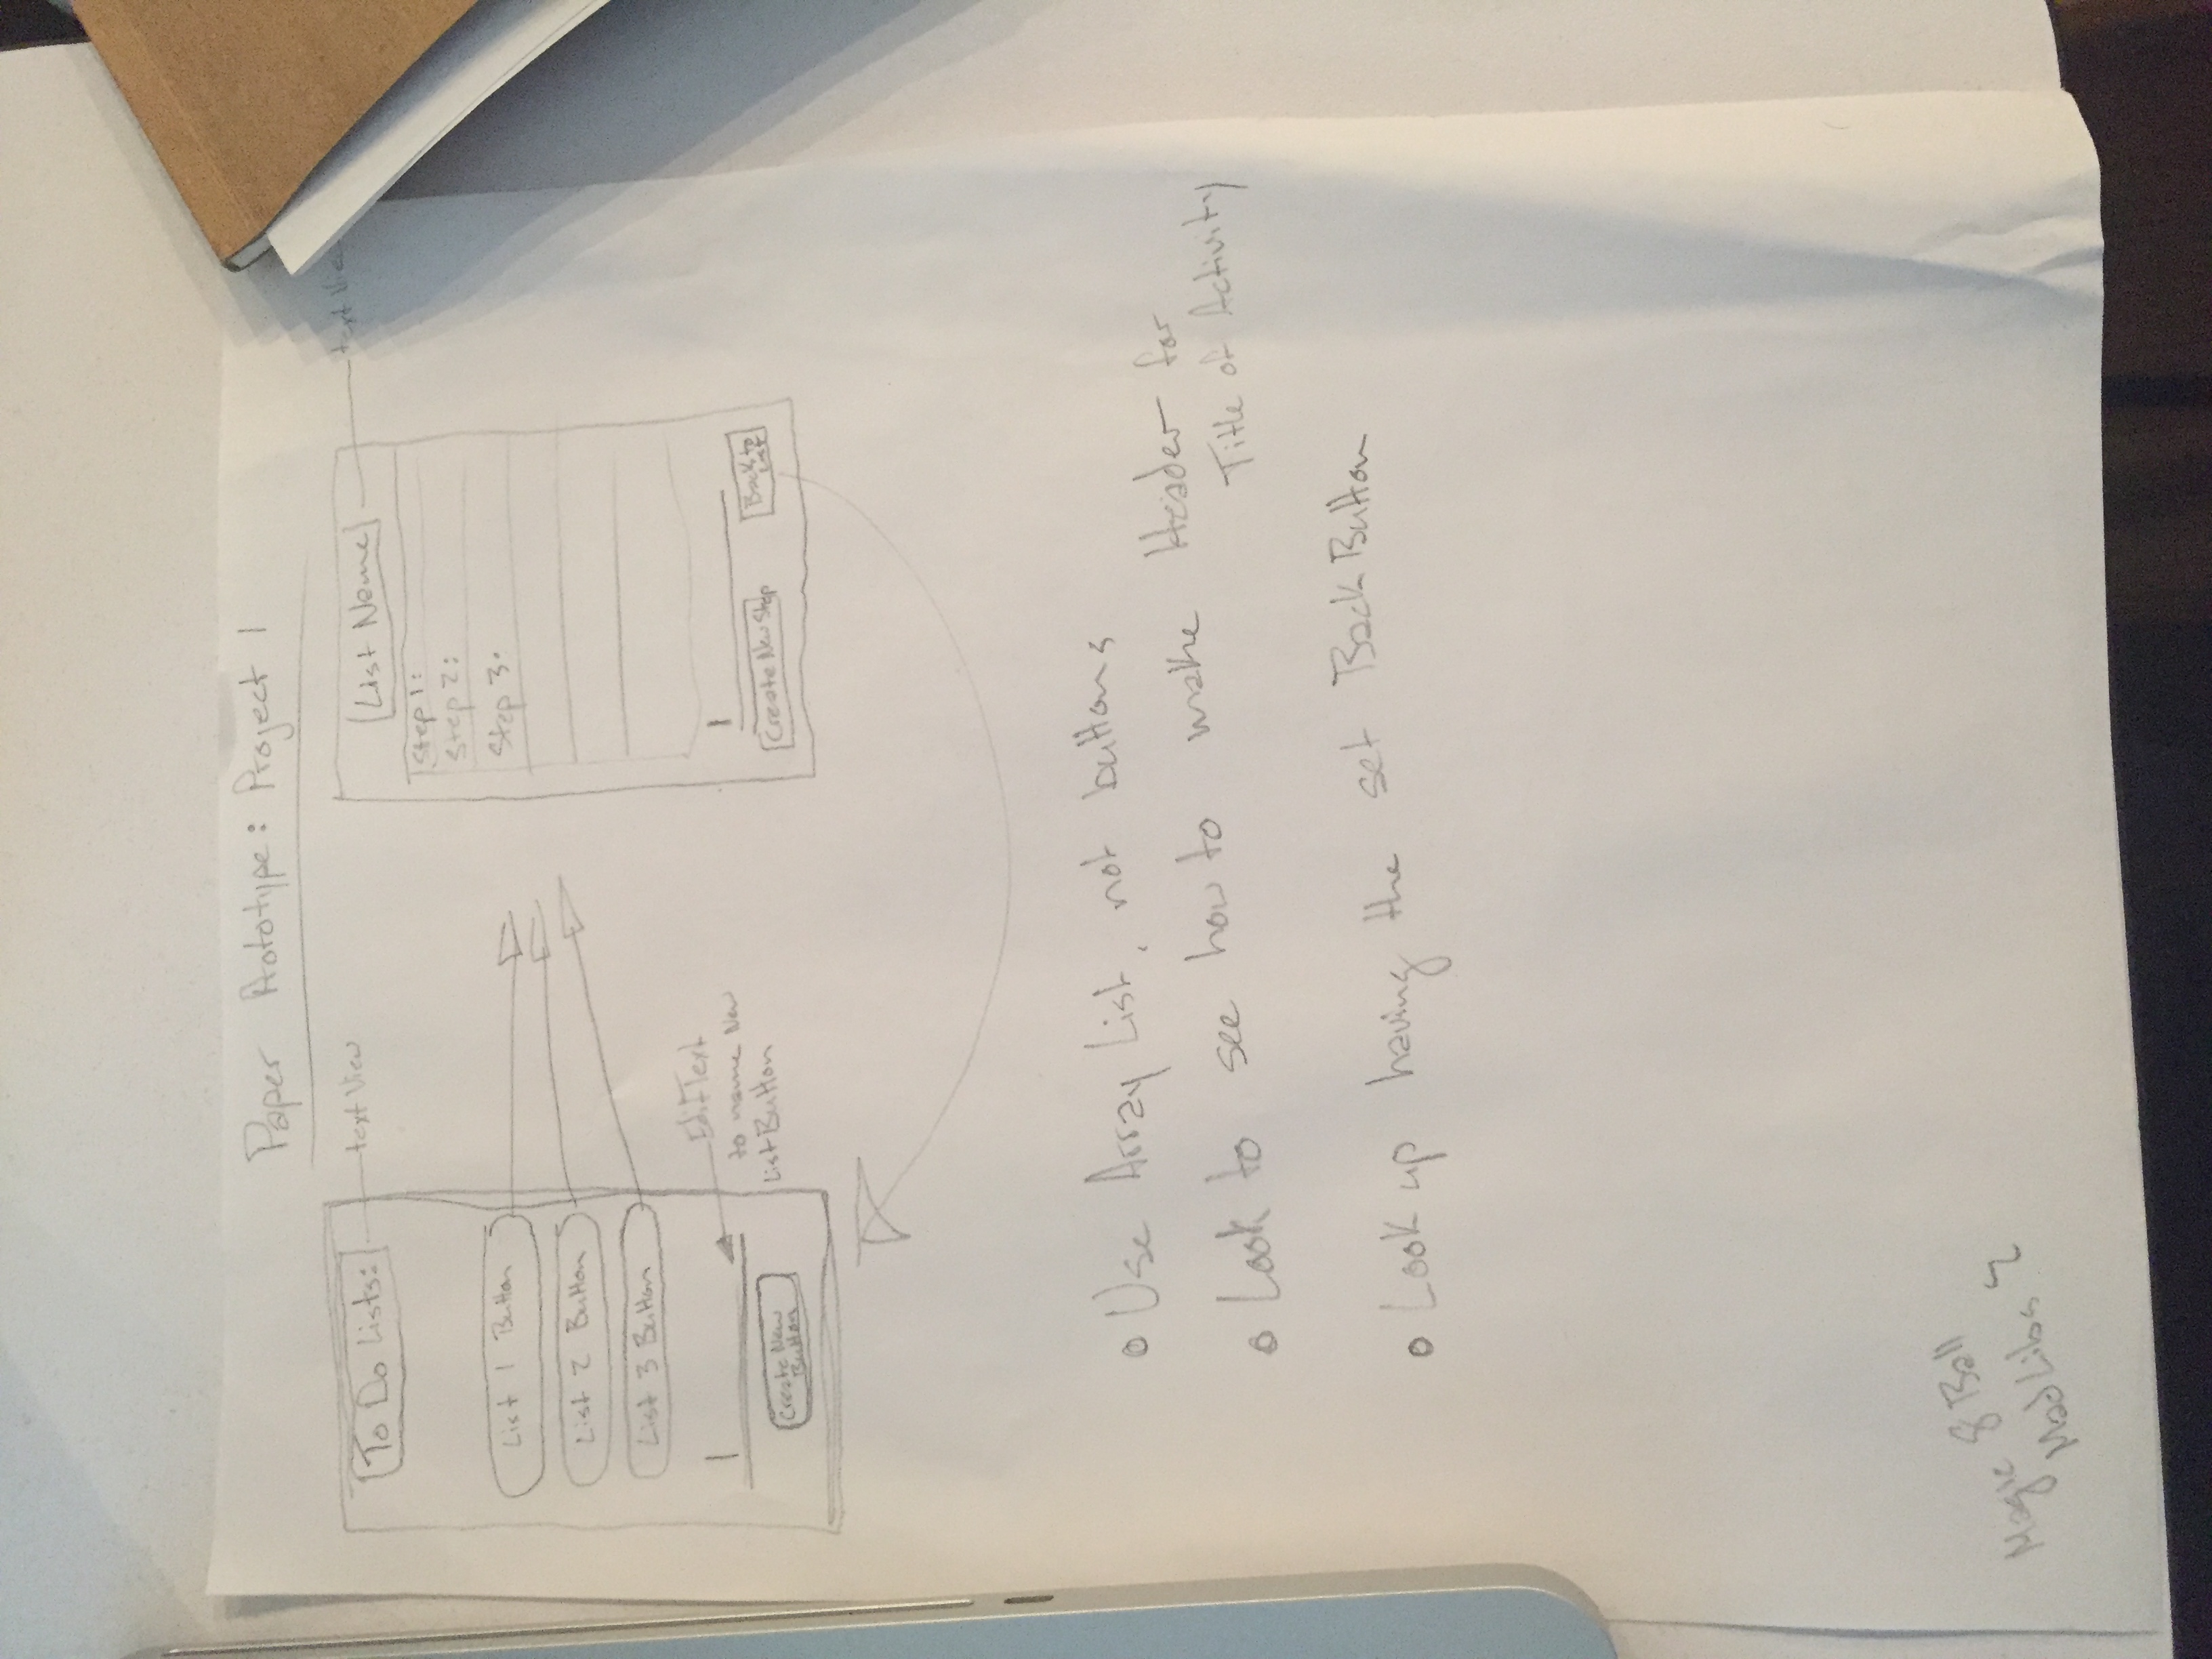 Paper Prototype: Project 1
To Do Lists:
text View
List 1 Button
List 2 Button
List 3 Button
Edit Text
to name New
List Button
Create New
Button
List Name
text View
Step 1:
Step 2:
Step 3:
Create New Step
Back to
List
Use Array List, not buttons
Look to see how to make Header for
Title of Activity
Look up having the set Back Button
Magic 8 Ball
Mad Libs 2